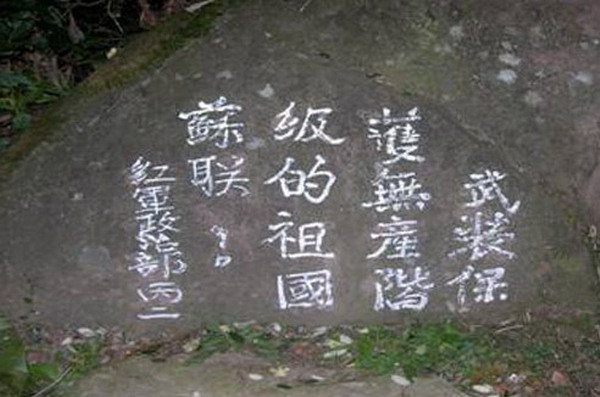 武装保
護無產階
级的祖國
蘇联！
紅軍政治部丙二